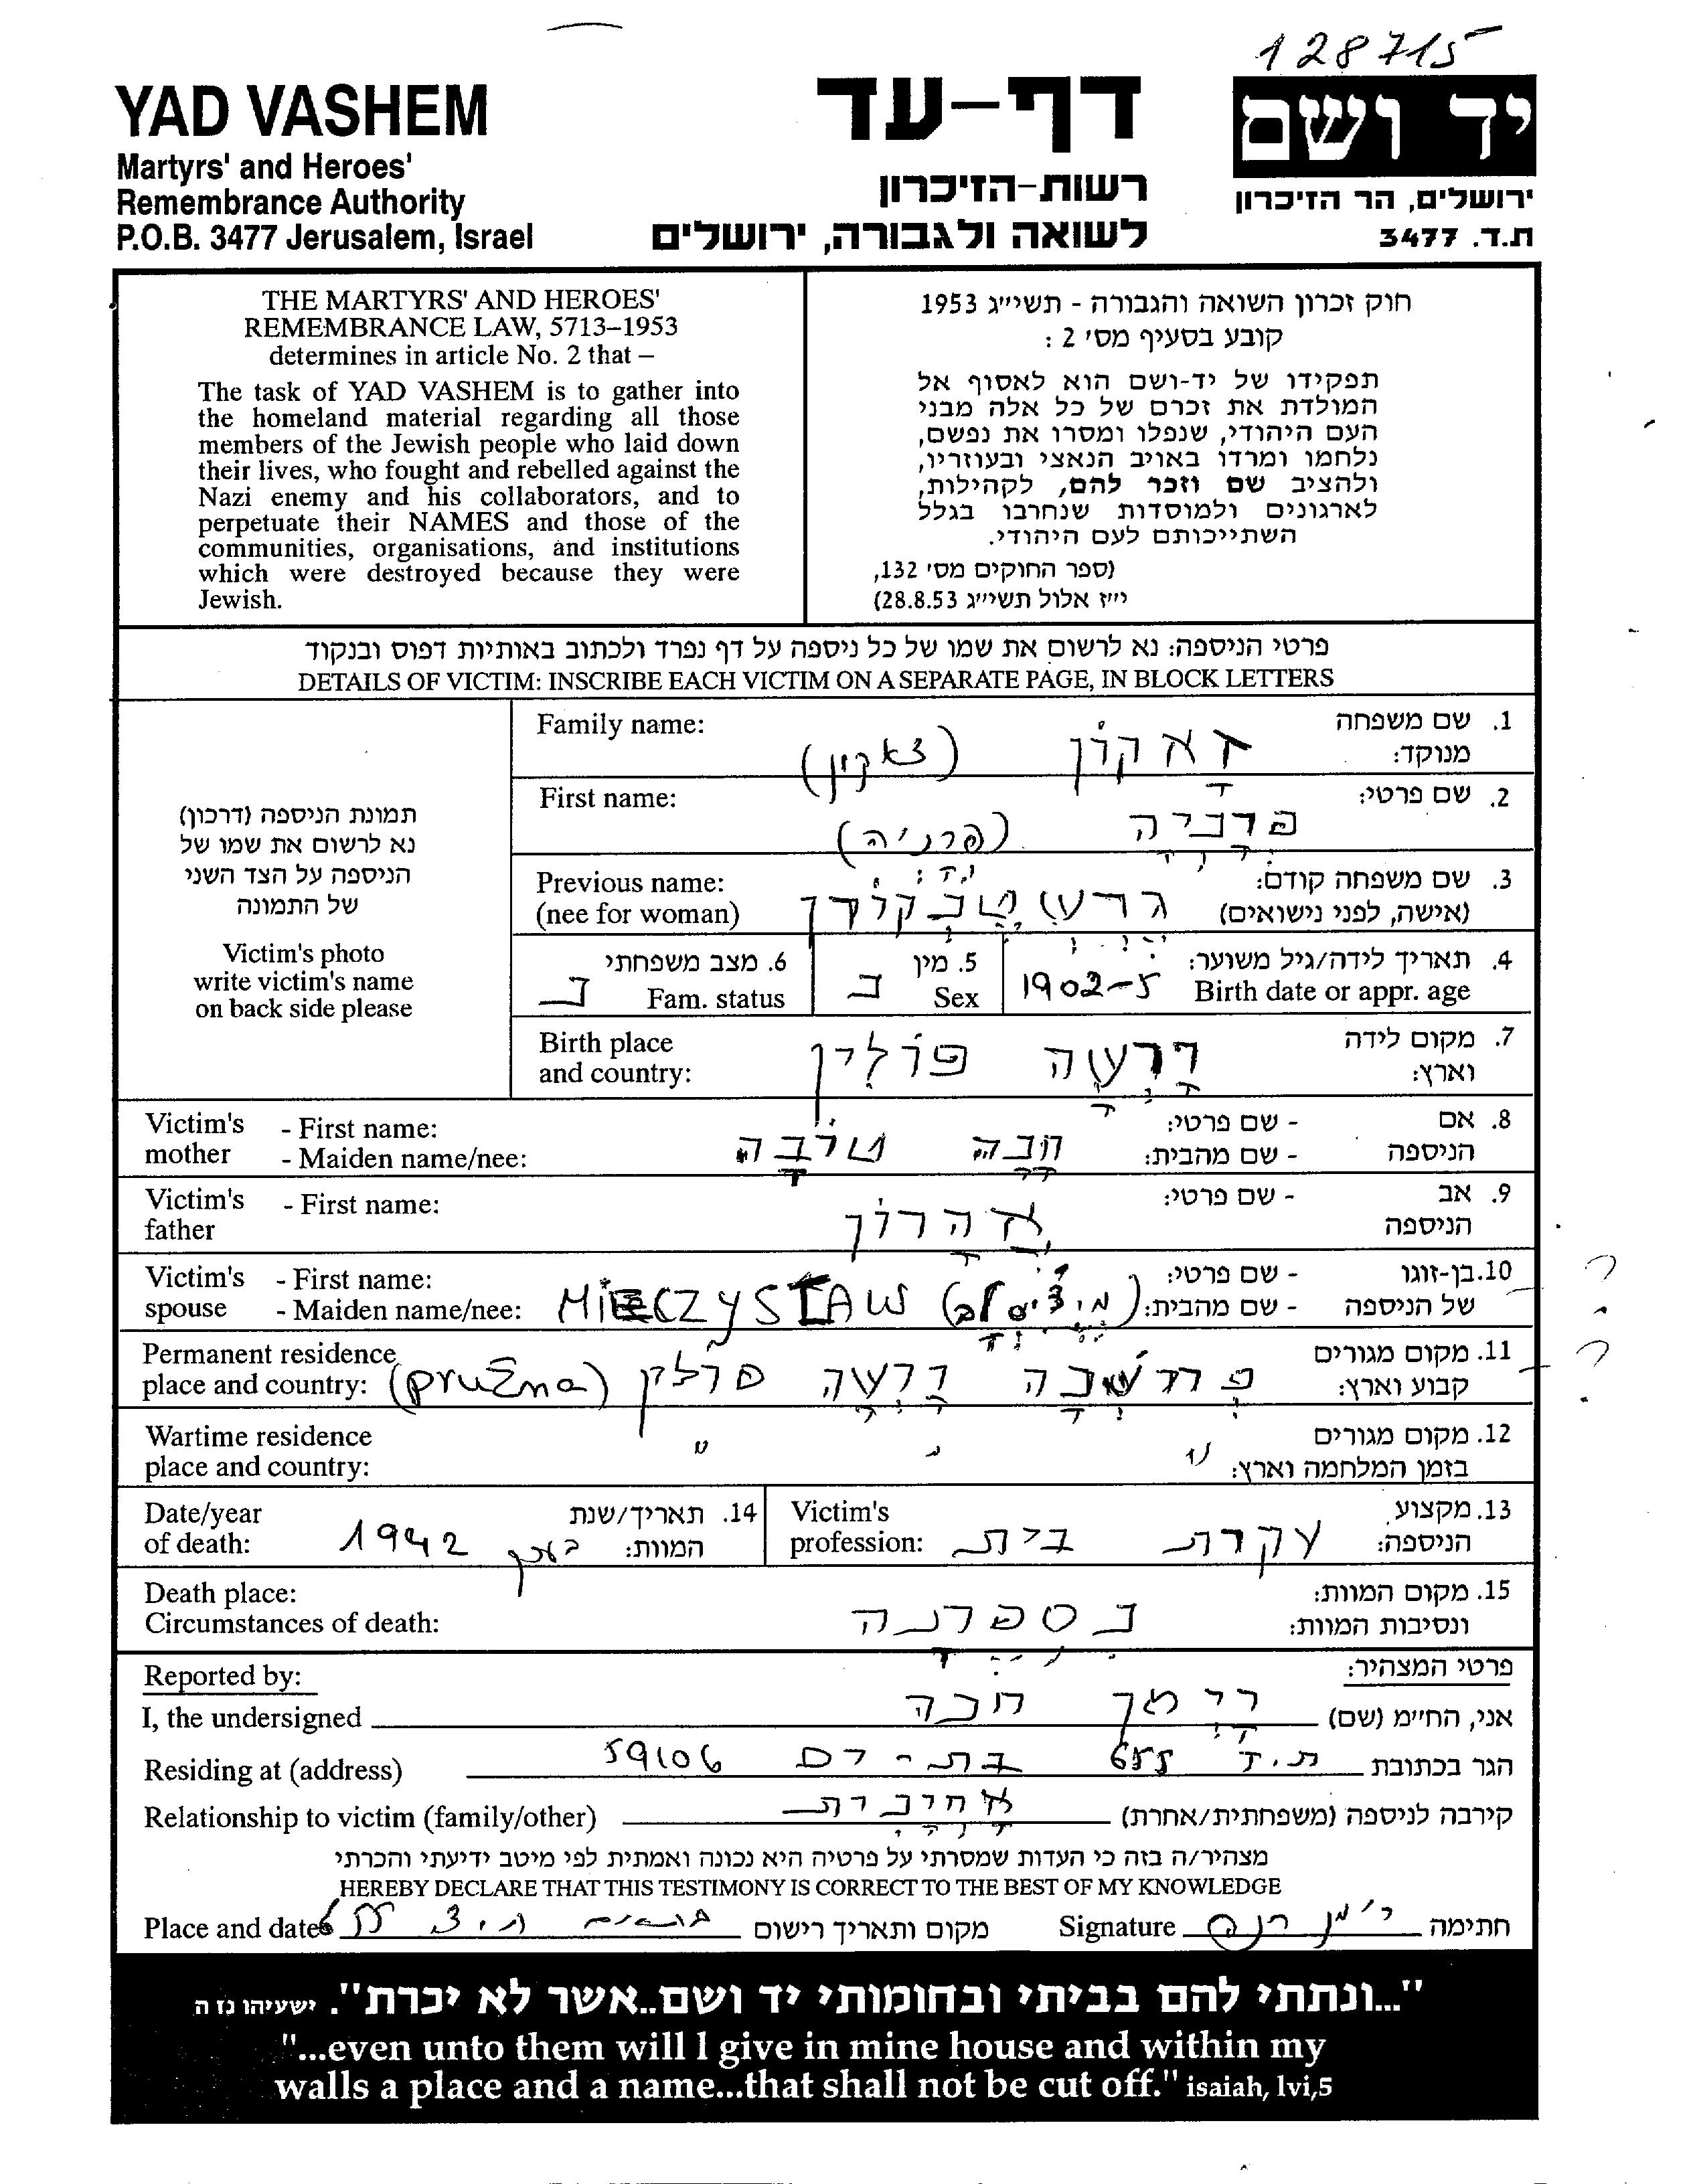 128715
YAD VASHEM
Martyrs' and Heroes'
Remembrance Authority
P.O.B. 3477 Jerusalem, Israel
דף-עד
רשות-הזיכרון
לשואה ולגבורה, ירושלים
יד ושם
ירושלים, הר הזיכרון
ת.ד. 3477
THE MARTYRS' AND HEROES'
REMEMBRANCE LAW, 5713–1953
determines in article No. 2 that –
The task of YAD VASHEM is to gather into
the homeland material regarding all those
members of the Jewish people who laid down
their lives, who fought and rebelled against the
Nazi enemy and his collaborators, and to
perpetuate their NAMES and those of the
communities, organisations, and institutions
which were destroyed because they were
Jewish.
חוק זכרון השואה והגבורה - תשי״ג 1953
קובע בסעיף מס' 2 :
תפקידו של יד-ושם הוא לאסוף אל
המולדת את זכרם של כל אלה מבני
העם היהודי, שנפלו ומסרו את נפשם,
נלחמו ומרדו באויב הנאצי ובעוזריו,
ולהציב שם וזכר להם, לקהילות,
לארגונים ולמוסדות שנחרבו בגלל
השתייכותם לעם היהודי.
(ספר החוקים מס' 132,
י״ז אלול תשי״ג 28.8.53)
פרטי הניספה: נא לרשום את שמו של כל ניספה על דף נפרד ולכתוב באותיות דפוס ובנקוד
DETAILS OF VICTIM: INSCRIBE EACH VICTIM ON A SEPARATE PAGE, IN BLOCK LETTERS
תמונת הניספה (דרכון)
נא לרשום את שמו של
הניספה על הצד השני
של התמונה
Victim's photo
write victim's name
on back side please
1. שם משפחה מנוקד: Family name:
2. שם פרטי: (פרניה) First name:
3. שם משפחה קודם: Previous name:
(אישה, לפני נישואים) (nee for woman)
4. תאריך לידה/גיל משוער: Birth date or appr. age 1902-5
5. מין Sex נ
6. מצב משפחתי Fam. status נ
7. מקום לידה וארץ: ורשה פולין Birth place and country:
8. אם הניספה - שם פרטי: - שם מהבית: חנה טובה
Victim's mother - First name: - Maiden name/nee:
9. אב הניספה - שם פרטי: אהרון
Victim's father - First name:
10. בן-זוגו של הניספה - שם פרטי: - שם מהבית: MIECZYSŁAW
Victim's spouse - First name: - Maiden name/nee:
11. מקום מגורים קבוע וארץ: ורשה פולין (pružna)
Permanent residence place and country:
12. מקום מגורים בזמן המלחמה וארץ: " " "
Wartime residence place and country:
13. מקצוע הניספה: עקרת בית Victim's profession:
14. תאריך/שנת המוות: 1942 Date/year of death:
15. מקום המוות: ונסיבות המוות:
Death place:
Circumstances of death:
פרטי המצהיר: Reported by:
אני, הח״מ (שם) רימן חנה I, the undersigned
הגר בכתובת ת.ד 655 בת-ים 59106 Residing at (address)
קירבה לניספה (משפחתית/אחרת) אחינית Relationship to victim (family/other)
מצהיר/ה בזה כי העדות שמסרתי על פרטיה היא נכונה ואמתית לפי מיטב ידיעתי והכרתי
HEREBY DECLARE THAT THIS TESTIMONY IS CORRECT TO THE BEST OF MY KNOWLEDGE
חתימה רימן חנה Signature
מקום ותאריך רישום Place and date
"...ונתתי להם בביתי ובחומותי יד ושם..אשר לא יכרת". ישעיהו נו ה
"...even unto them will I give in mine house and within my
walls a place and a name...that shall not be cut off." isaiah, lvi,5